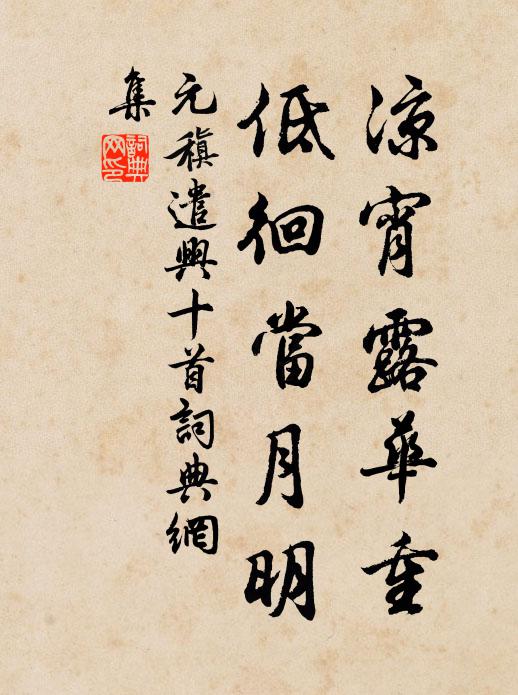 涼宵露華重
低徊當月明
元稹遣興十首詞典網
集
詞典
网印